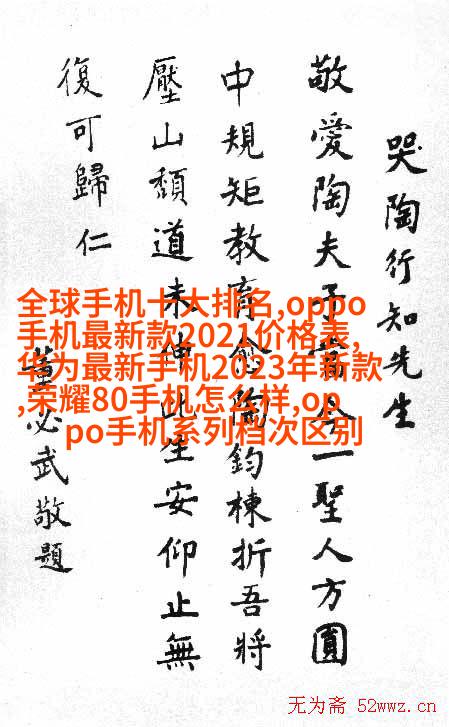 哭陶行知先生
敬愛陶夫子當今一聖人方圓
中規矩教育愈陶鈞棟折吾將
壓山頹道未伸此生安仰止無
復可歸仁
董必武敬題
全球手机十大排名,oppo
手机最新款2021价格表,
华为最新手机2023年新款
,荣耀80手机怎么样,op
po手机系列档次区别
无为斋 52wwz.cn